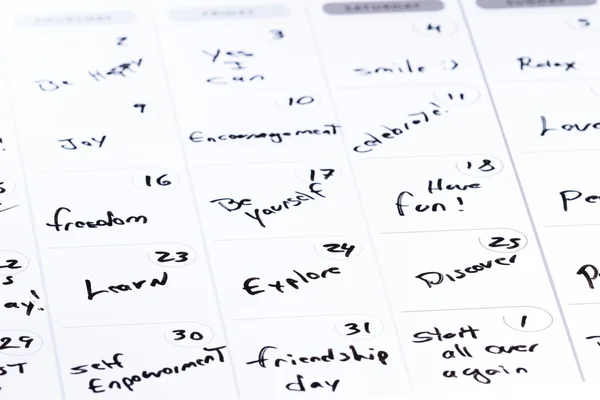 THURSDAY FRIDAY SATURDAY SUNDAY
2 3 4 5
Be Happy
Yes
I
can
smile :)
Relax
9 10 11
Joy
Encouragement
celebrate!
Love
16 17 18
freedom
Be
yourself
Have
fun!
Pe
2 23 24 25
s
ay!
Learn
Explore
Discover
29 30 31 1
ST
self
Empowerment
friendship
day
Start
all over
again